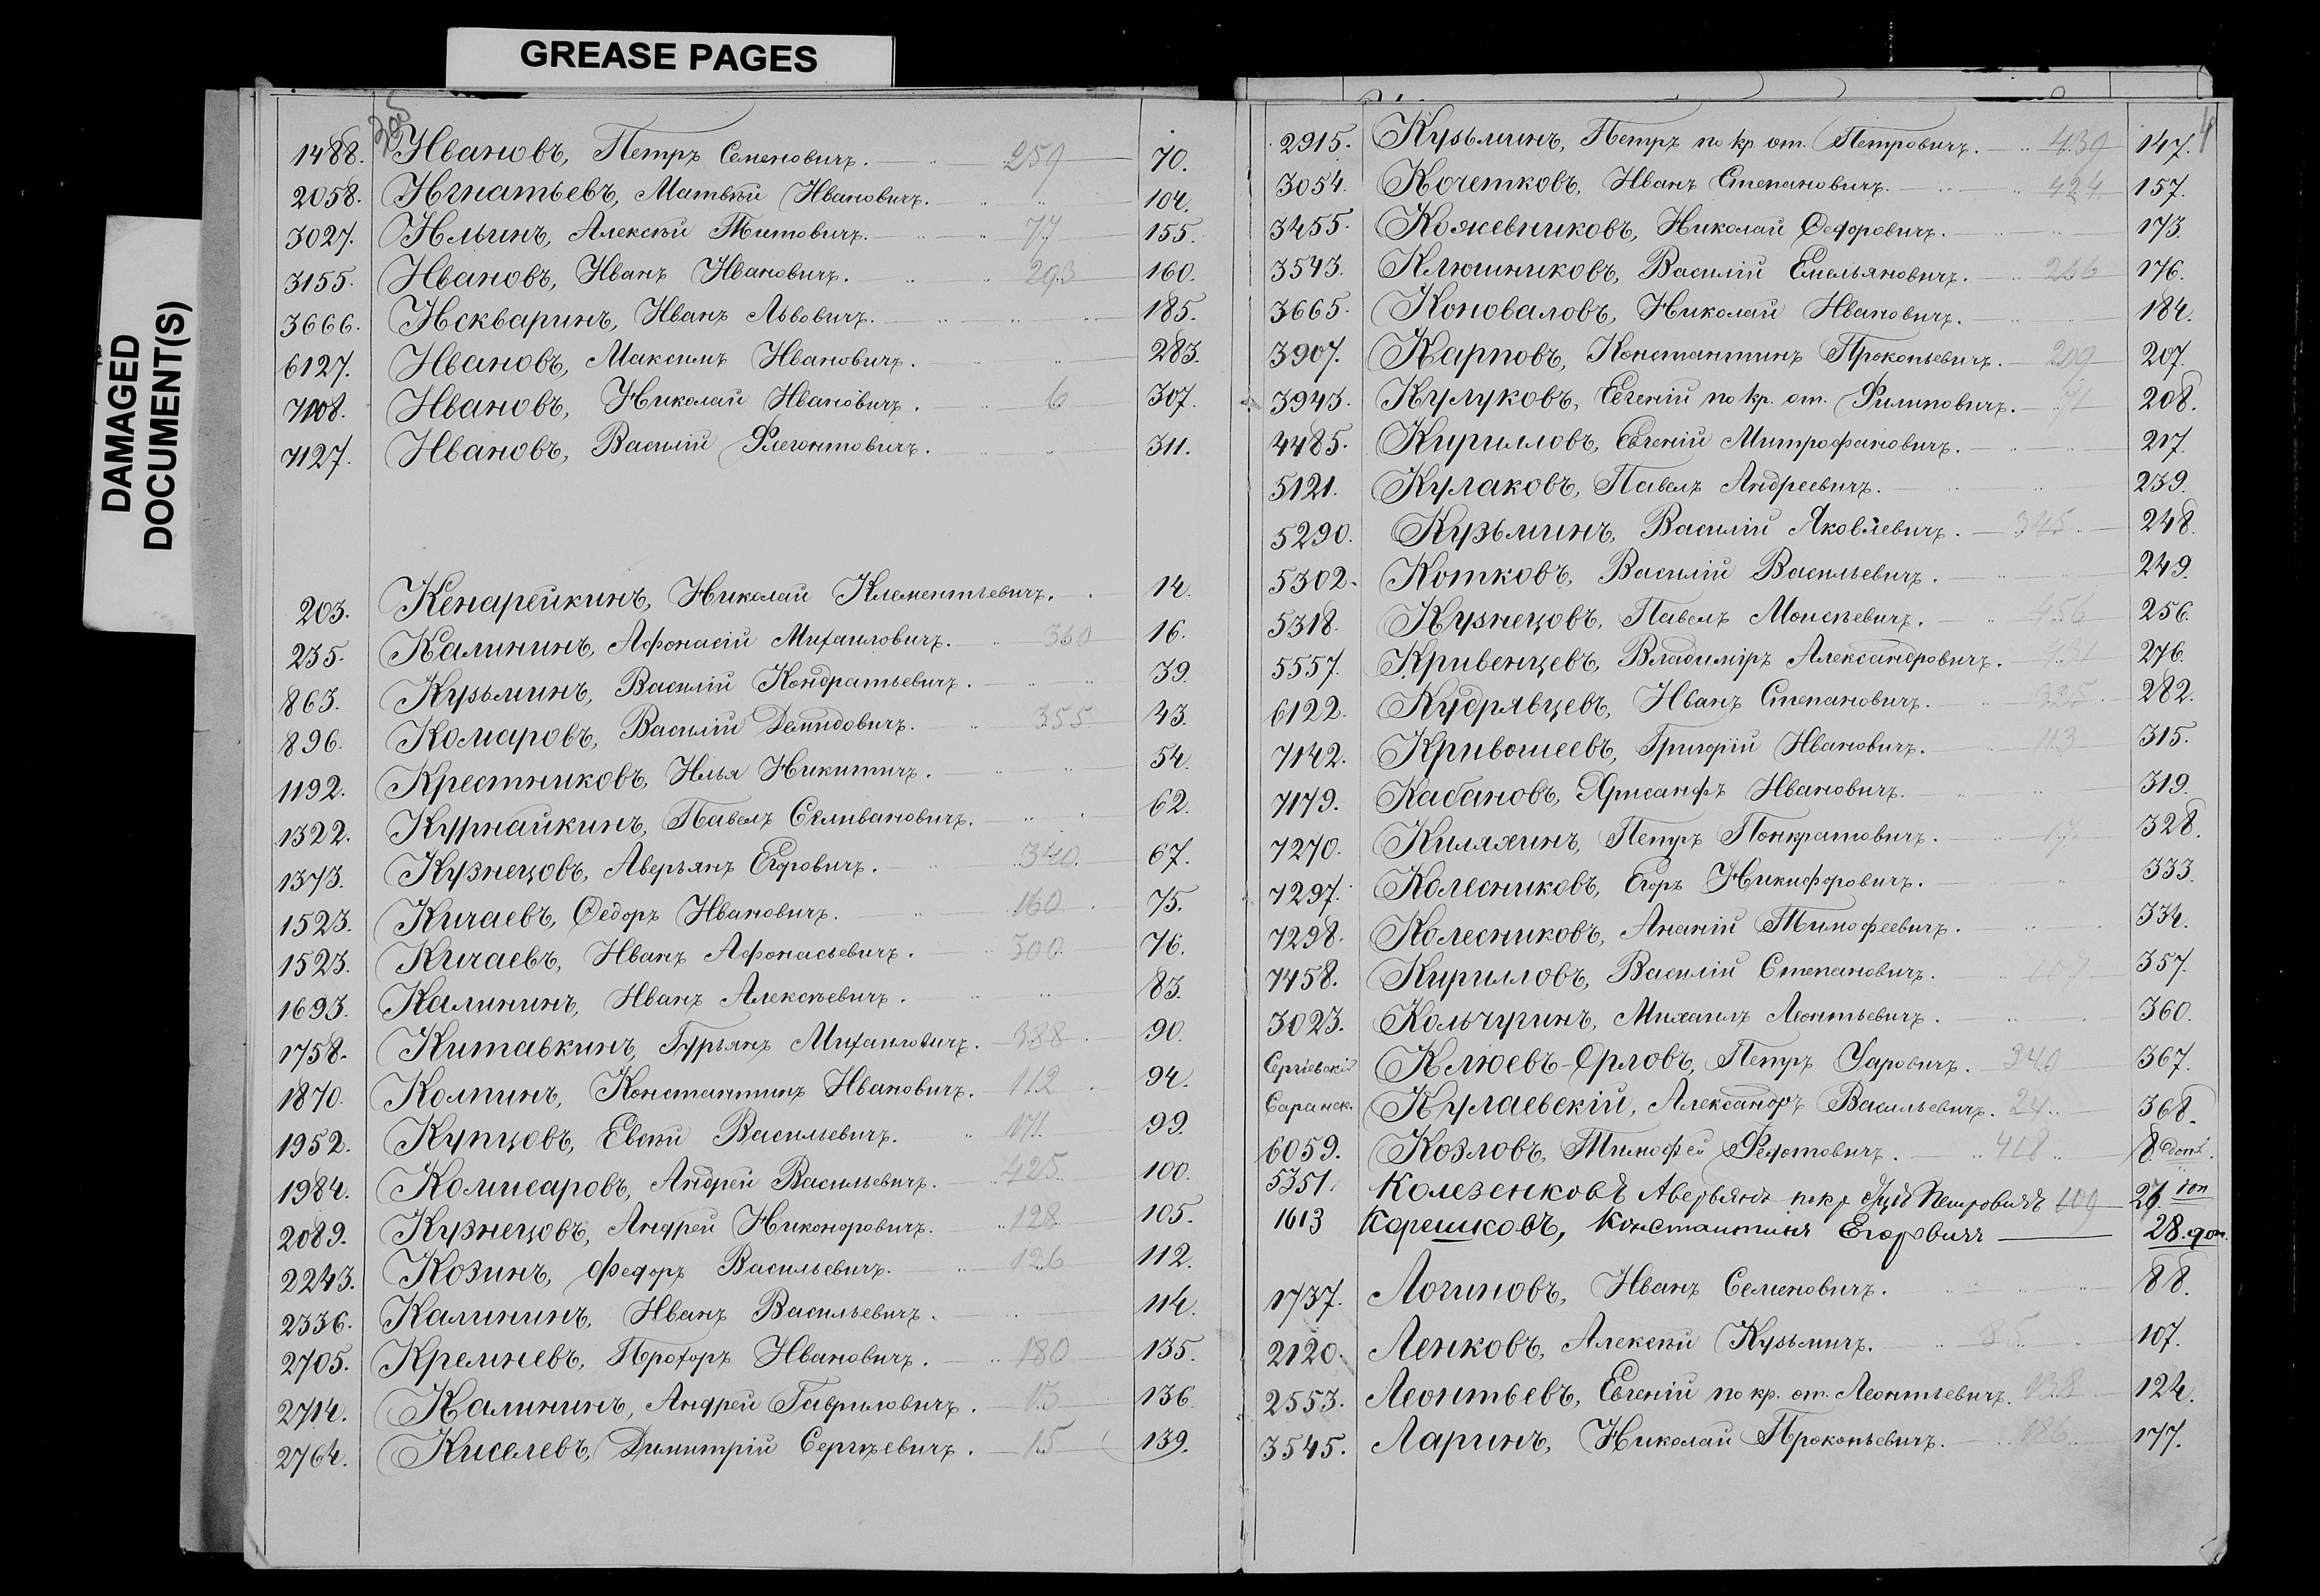 GREASE PAGES
DAMAGED
DOCUMENT(S)
1488. Ивановъ, Петръ Семеновичъ. 259 70.
2058. Игнатьевъ, Матвѣй Ивановичъ. 104.
3027. Ильинъ, Алексѣй Титовичъ. 77 155.
3155. Ивановъ, Иванъ Ивановичъ. 293 160.
3666. Искваринъ, Иванъ Львовичъ. 185.
6127. Ивановъ, Максимъ Ивановичъ. 283.
7108. Ивановъ, Николай Ивановичъ. 6 307.
7127. Ивановъ, Василій Флегонтовичъ. 311.
203. Кенарейкинъ, Николай Клементьевичъ. 14.
235. Калининъ, Афонасій Михаиловичъ. 360 16.
863. Кузьминъ, Василій Кондратьевичъ. 39.
896. Комаровъ, Василій Демидовичъ. 355 43.
1192. Крестниковъ, Илья Никитичъ. 54.
1322. Курнайкинъ, Павелъ Селивановичъ. 62.
1373. Кузнецовъ, Аверьянъ Егоровичъ. 340. 67.
1523. Кичаевъ, Ѳедоръ Ивановичъ. 160 75.
1523. Кичаевъ, Иванъ Афонасьевичъ. 300. 76.
1693. Калининъ, Иванъ Алексѣевичъ. 83.
1758. Китавкинъ, Гурьянъ Михаиловичъ. 388 90.
1870. Колпинъ, Константинъ Ивановичъ. 112 94.
1952. Купцовъ, Евсѣй Васильевичъ. 171. 99.
1984. Комисаровъ, Андрей Васильевичъ. 425. 100.
2089. Кузнецовъ, Андрей Никоноровичъ. 128. 105.
2243. Козинъ, Федоръ Васильевичъ. 126 112.
2336. Калининъ, Иванъ Васильевичъ. 114.
2705. Кремневъ, Прохоръ Ивановичъ. 180 135.
2714. Калининъ, Андрей Гавриловичъ. 13 136.
2764. Киселевъ, Димитрій Сергѣевичъ. 15 139.
4
2915. Кузьминъ, Петръ по кр. от. Петровичъ. 439 147.
3054. Кочетковъ, Иванъ Степановичъ. 424. 157.
3455. Кожевниковъ, Николай Ѳедоровичъ. 173.
3543. Ключниковъ, Василій Емельяновичъ. 266 176.
3665. Коноваловъ, Николай Ивановичъ. 184.
3907. Карповъ, Константинъ Прокопьевичъ. 209 207.
3943. Кулуковъ, Евгеній по кр. от. Филиповичъ. 71 208.
4485. Кирилловъ, Евгеній Митрофановичъ. 217.
5121. Кулаковъ, Павелъ Андреевичъ. 239.
5290. Кузьминъ, Василій Яковлевичъ. 345. 248.
5302. Котковъ, Василій Васильевичъ. 249.
5318. Кузнецовъ, Павелъ Моисѣевичъ. 456 256.
5557. Кривенцевъ, Владиміръ Александровичъ. 276.
6122. Кудрявцевъ, Иванъ Степановичъ. 325. 282.
7142. Кривошеевъ, Григорій Ивановичъ. 113 315.
7179. Кабановъ, Хрисанфъ Ивановичъ. 319.
7270. Киляхинъ, Петръ Понкратовичъ. 17. 328.
7297. Колесниковъ, Егоръ Никифоровичъ. 333.
7298. Колесниковъ, Ананій Тимофеевичъ. 334.
7458. Кирилловъ, Василій Степановичъ. 107 357.
3023. Кольчугинъ, Михаилъ Леонтьевичъ. 360.
Сергіевскій Клюевъ-Орловъ, Петръ Уаровичъ. 340 367.
Саранск. Кулаевскій, Александръ Васильевичъ. 24. 368.
6059. Козловъ, Тимофей Федотовичъ. 418 8. доп.
5351. Колезенковъ Аверьянъ по кр. Петровичъ 109 26. доп
1613 Корешковъ, Константинъ Егоровичъ 28. доп.
1737. Логиновъ, Иванъ Семеновичъ. 88.
2120. Ленковъ, Алексѣй Кузьмичъ. 85. 107.
2553. Леонтьевъ, Евгеній по кр. от. Леонтьевичъ. 138. 124.
3545. Ларинъ, Николай Прокопьевичъ. 186. 177.